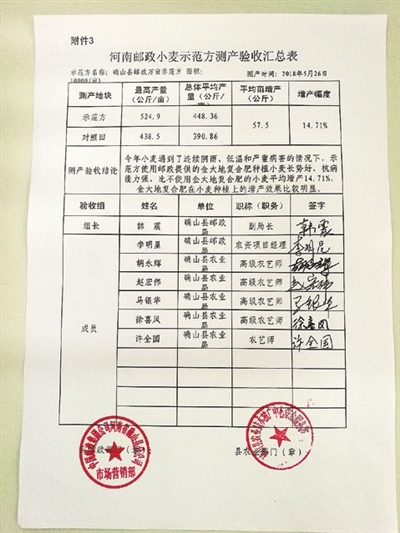 附件3
河南邮政小麦示范方测产验收汇总表
示范方名称：确山县邮政万亩示范方 面积：
10000(亩)
测产时间：2018年5月26日
测产地块 最高产量(公斤/亩) 总体平均产量(公斤/亩) 平均亩增产(公斤) 增产幅度
示范方 524.9 448.36 57.5 14.71%
对照田 438.5 390.86
测产验收结论
今年小麦遇到了连续阴雨，低温和严重病害的情况下，示
范方使用邮政提供的金大地复合肥种植小麦长势好，抗病
能力强，比不使用金大地复合肥的小麦平均增产14.71%。
金大地复合肥在小麦种植上的增产效果比较明显。
验收组 姓名 单位 职称（职务） 签字
组长 韩震 确山县邮政局 副局长 韩震
成员
李明星 确山县邮政局 农资项目经理
胡永辉 确山县农业局 高级农艺师
赵宏伟 确山县农业局 高级农艺师
马银华 确山县农业局 高级农艺师
徐喜凤 确山县农业局 高级农艺师 徐喜凤
许全国 确山县农业局 农艺师 许全国
市场营销部
县农业部门（章）